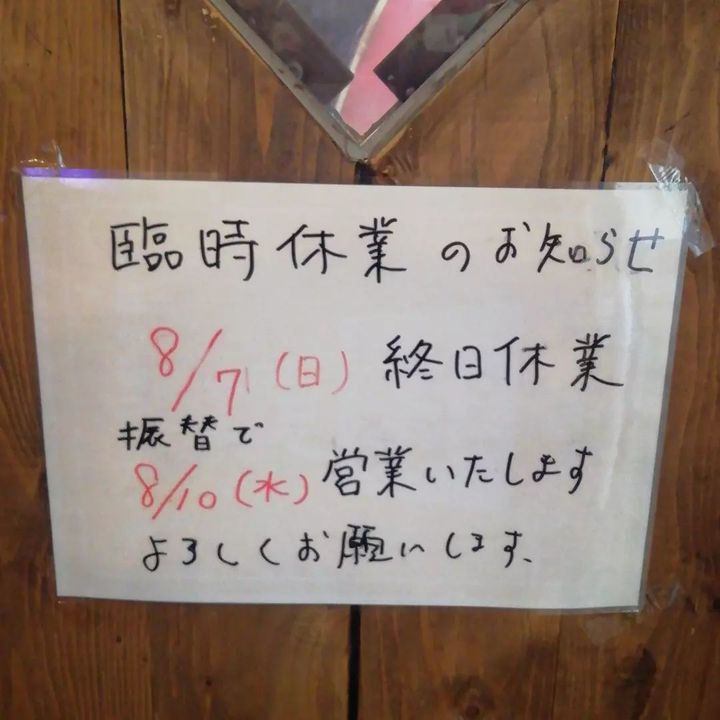 臨時休業のお知らせ
8/7(日) 終日休業
振替で
8/10(水) 営業いたします
よろしくお願いします、